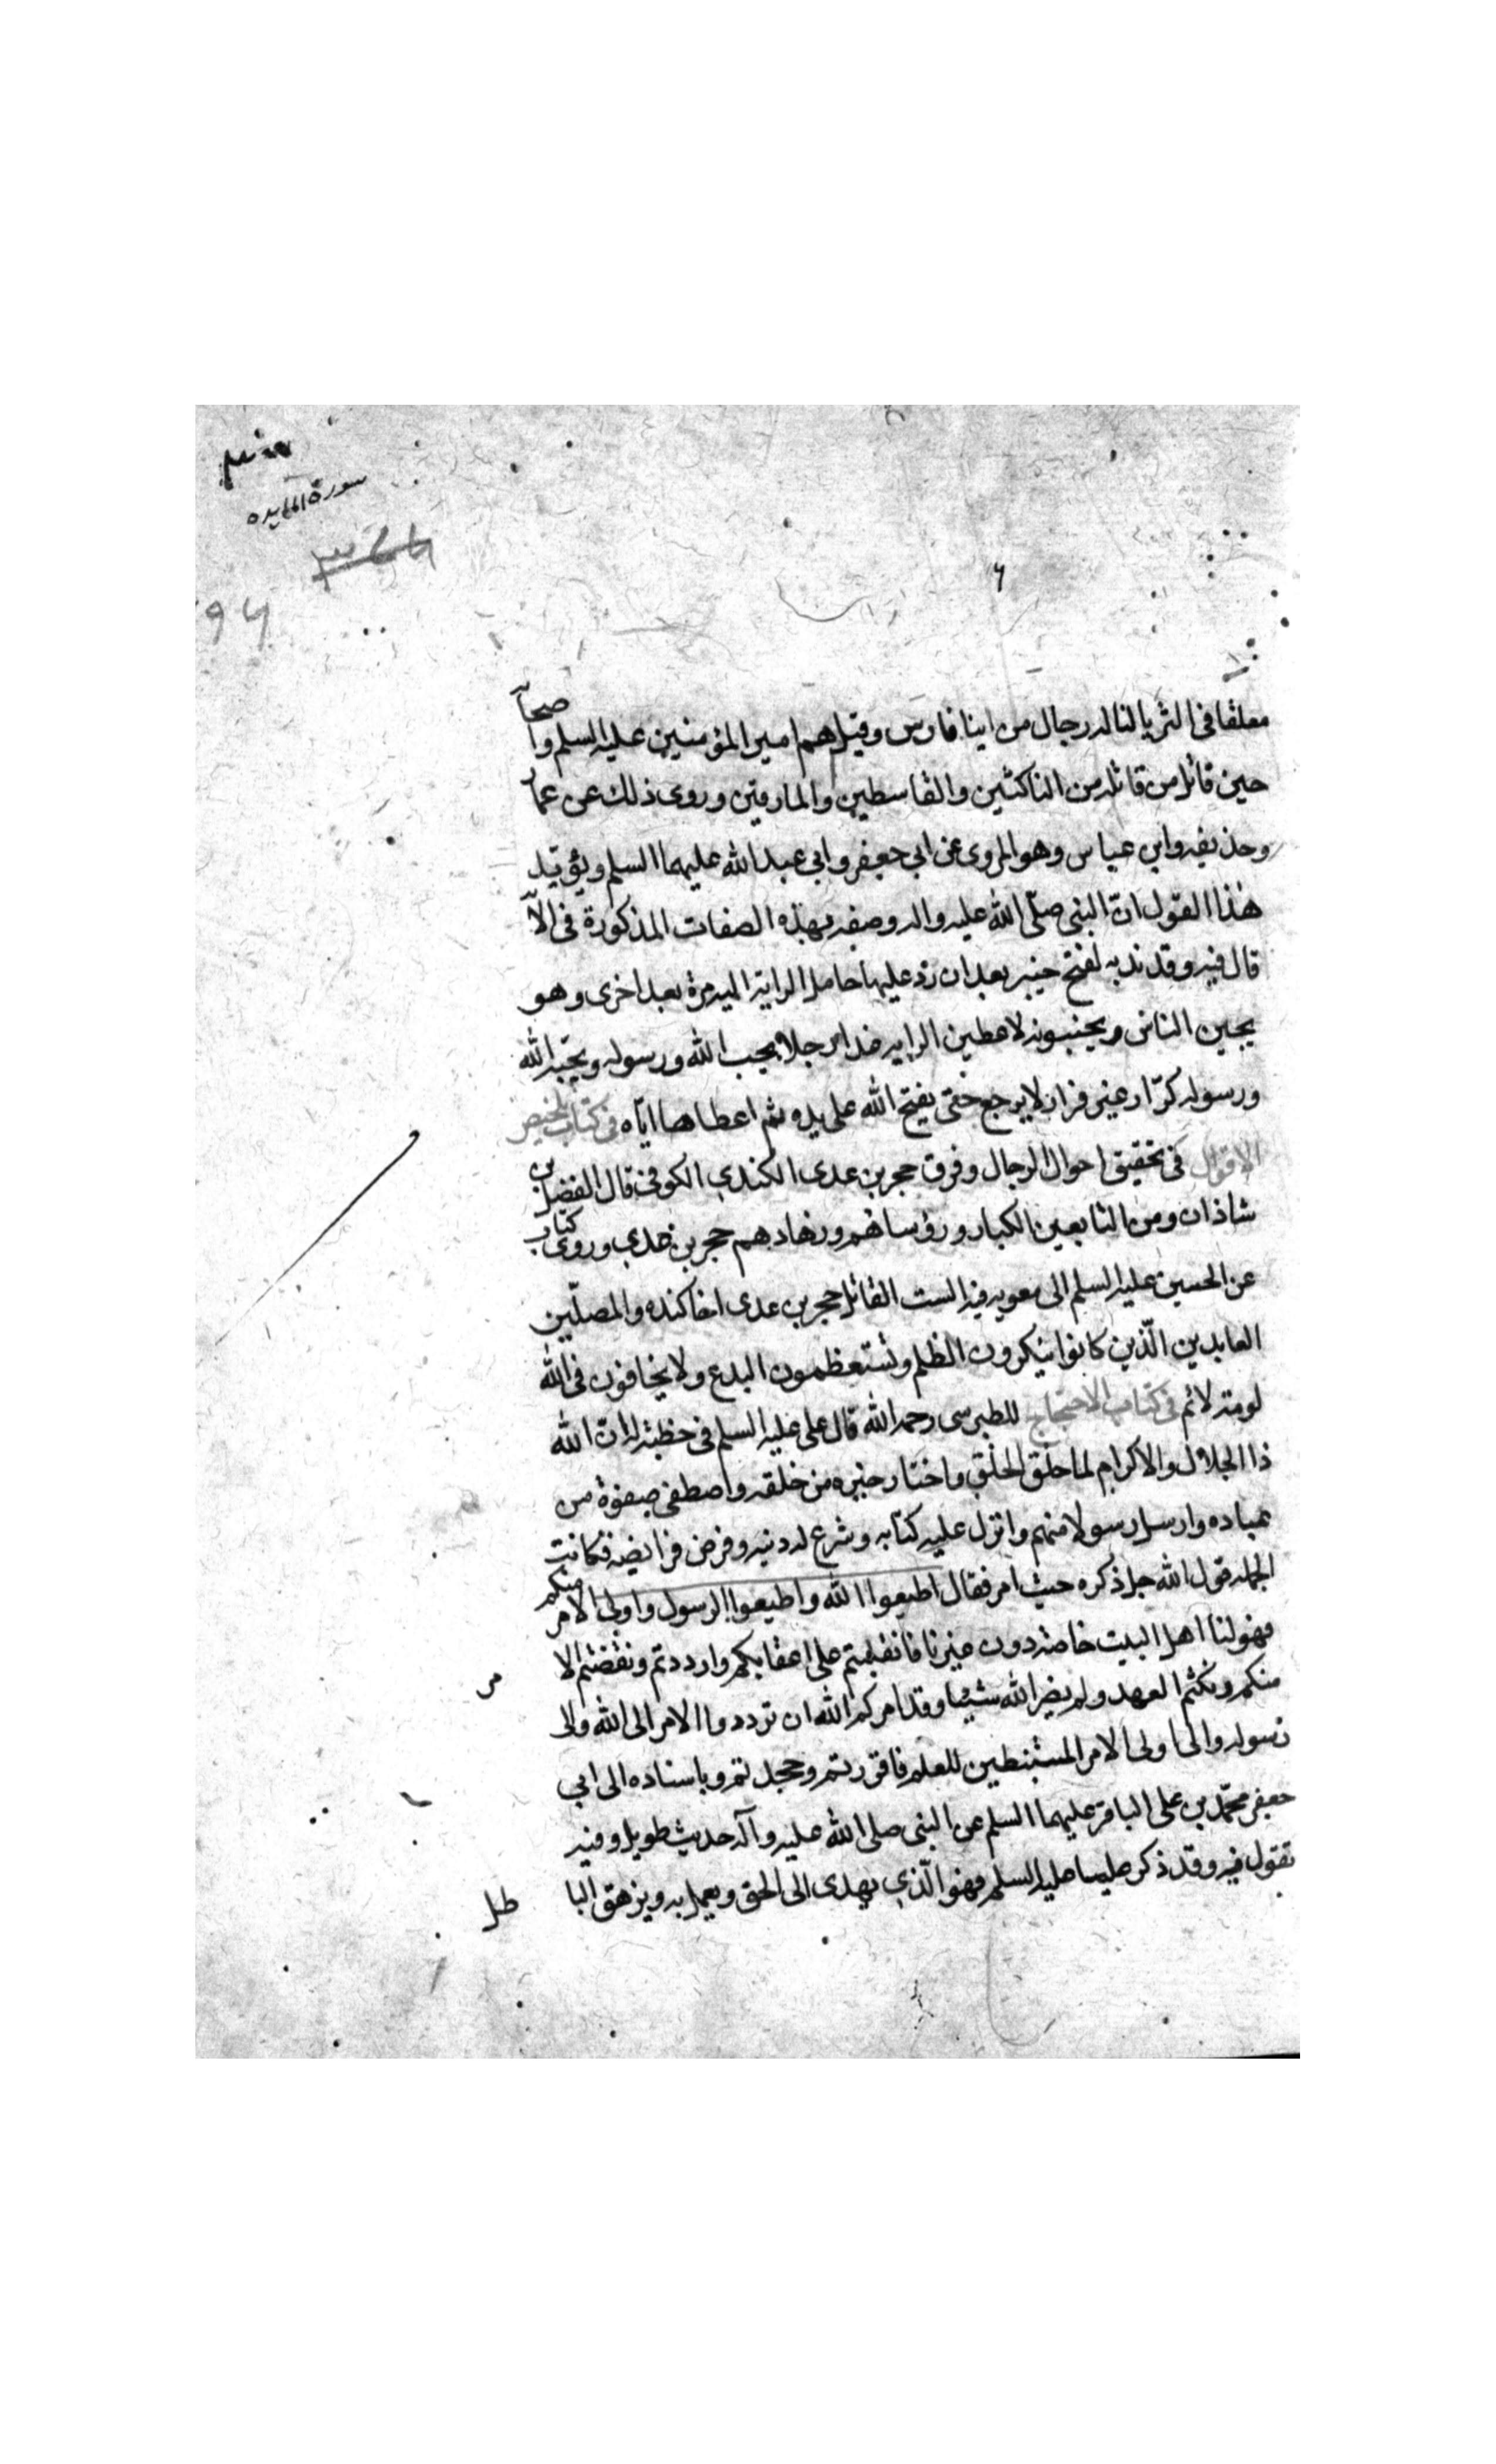 سورة المایده
٩٦
٦
معلقا فی الثریا لناله رجال من ابنا فارس وقیل هم امیر المؤمنین علیه السلم واصحا
حین قاتل من قاتله من الناکثین والقاسطین والمارقین وروی ذلك عن عمار
وحذیفه وابن عباس وهو المروی عن ابی جعفر وابی عبد الله علیهما السلم ویؤید
هذا القول ان النبی صلّی الله علیه واله وصفه بهذه الصفات المذکورة فی الآ
قال فیه وقد ندبه لفتح خیبر بعد ان رد علیها حامل الرایة الیه مرة بعد اخری وهو
یجبن الناس ویجنبونه لاعطین الرایه غدا رجلا یحب الله ورسوله ویحبّه الله
ورسوله کرّار غیر فرار لا یرجع حتی یفتح الله علی یده ثم اعطاها ایّاه فی کتاب تلخیص
الاقوال فی تحقیق احوال الرجال وفرق حجر بن عدی الکندی الکوفی قال الفضل بن
شاذان ومن التابعین الکبار ورؤسائهم وزهادهم حجر بن عدی وروی کتاب
عن الحسین علیه السلم الی معویه فیه الست القاتل حجر بن عدی اخا کنده والمصلّین
العابدین الّذین کانوا ینکرون الظلم وتستعظمون البدع ولا یخافون فی الله
لومة لائم فی کتاب الاحتجاج للطبرسی رحمه الله قال علی علیه السلم فی خطبة له ان الله
ذا الجلال والاکرام لما خلق الخلق واختار خیره من خلقه واصطفی صفوة من
عباده وارسل رسولا منهم وانزل علیه کتابه وشرع له دینه وفرض فرایضه فکانت
الجمله قول الله جل ذکره حیث امر فقال اطیعوا الله واطیعوا الرسول واولی الامر منکم
فهو لنا اهل البیت خاصه دون غیرنا فانقلبتم علی اعقابکم وارددتم ونقضتم الا
مر
منکم ونکثم العهد ولم یضر الله شیئا وقد امرکم الله ان تردوا الامر الی الله والی
رسوله والی اولی الامر المستنبطین للعلم فاقررتم وجحدتم وباسناده الی ابی
جعفر محمّد بن علی الباقر علیهما السلم عن النبی صلی الله علیه وآله حدیث طویل وفیه
تقول فیه وقد ذکر علیا علیه السلم فهو الّذی یهدی الی الحق ویعمل به ویزهق البا
طل